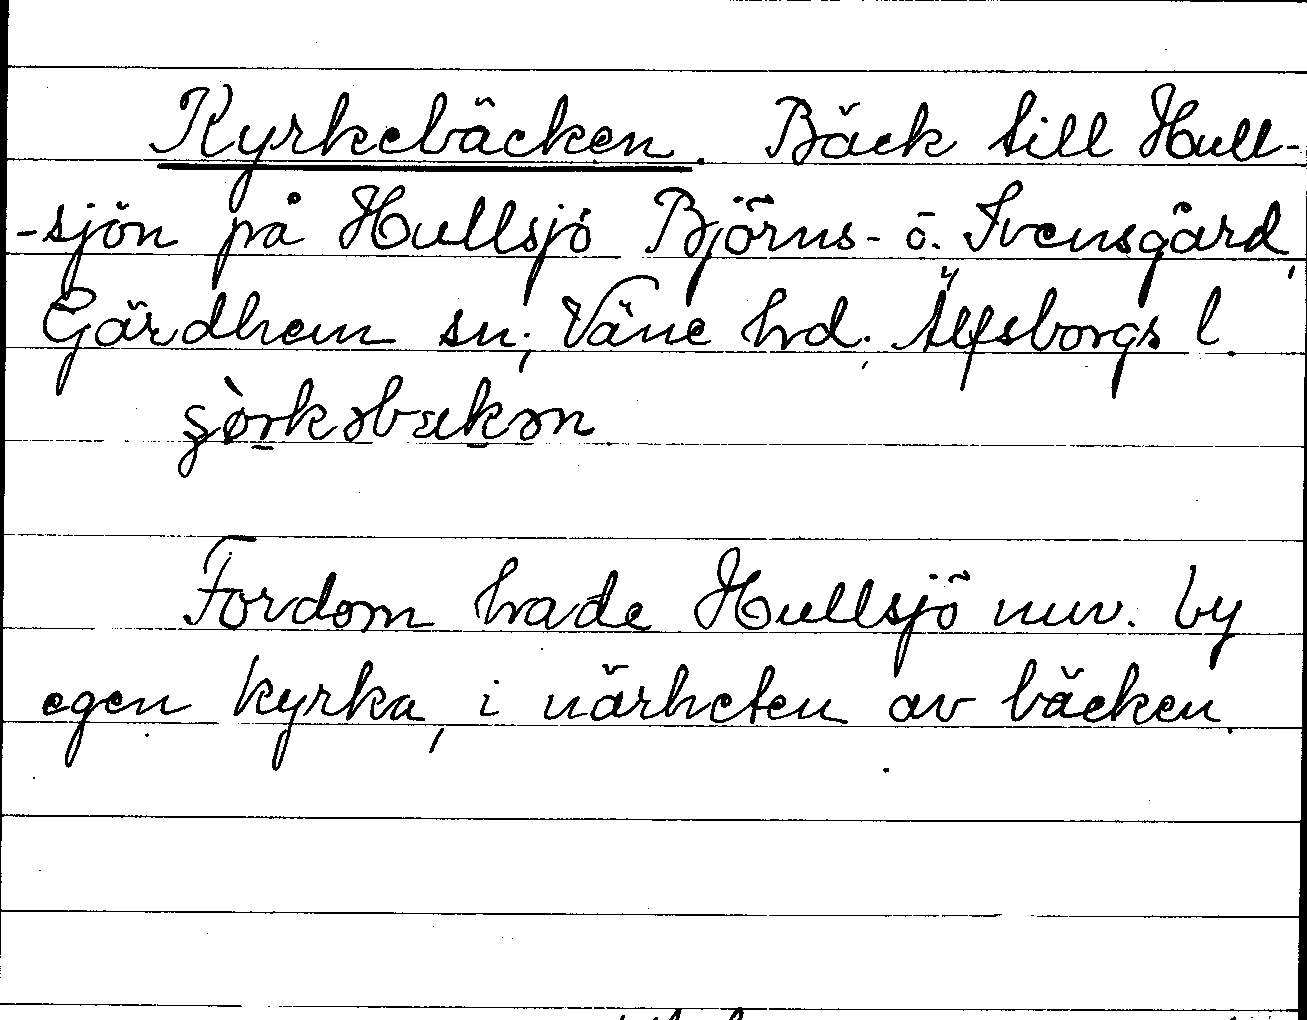 Kyrkebäcken. Bäck till Hull-
-sjön på Hullsjö Björns- o. Svensgård,
Gärdhem sn; Väne hd; Älfsborgs l.
Fordom hade Hullsjö nuv. by
egen kyrka, i närheten av bäcken.